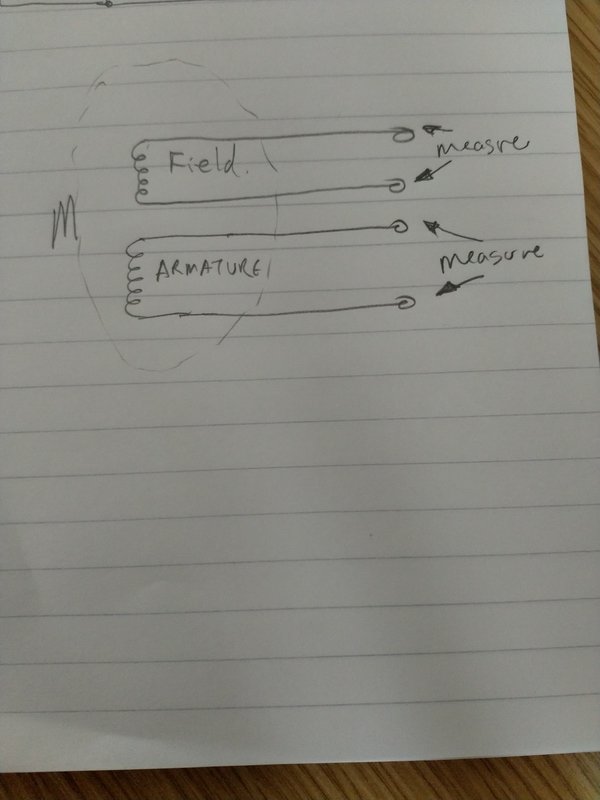 Field.
measre
M
ARMATURE
measure